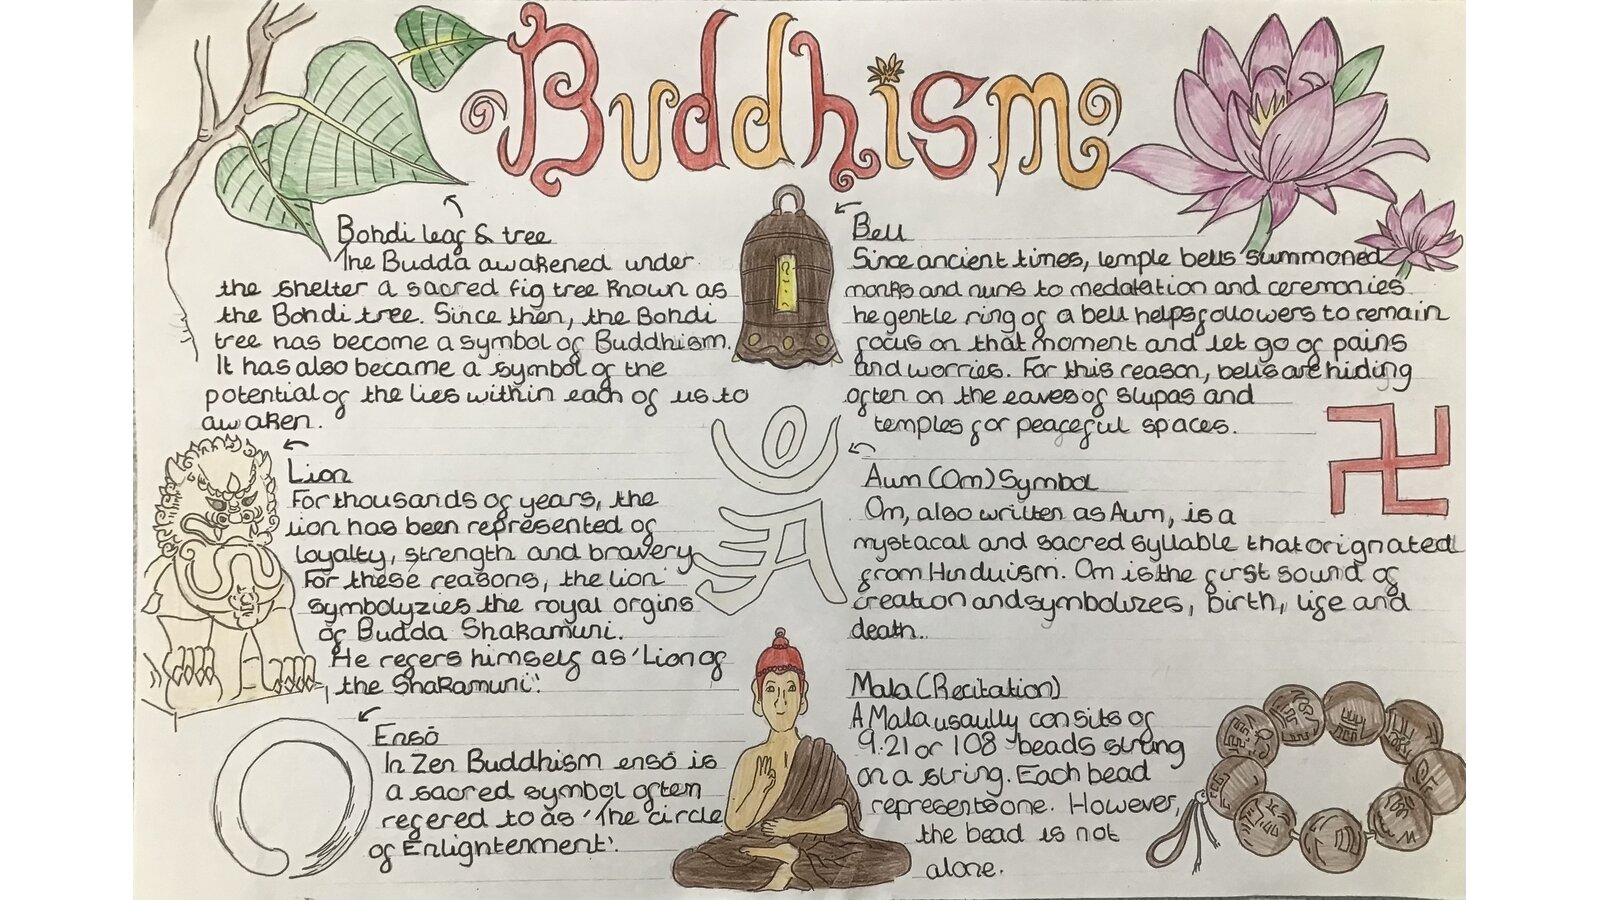 Buddhism
Bohdi leaf & tree
The Budda awakened under
the shelter a sacred fig tree known as
the Bohdi tree. Since then, the Bohdi
tree has become a symbol of Buddhism.
It has also became a symbol of the
potential of the lies within each of us to
awaken.
Lion
For thousands of years, the
lion has been represented of
loyalty, strength and bravery
For these reasons, the lion
symbolyzies the royal orgins
of Budda Shakamuni.
He refers himself as 'Lion of
the Shakamuni'.
Ensō
In Zen Buddhism ensō is
a sacred symbol often
refered to as 'The circle
of Enlightenment'.
Bell
Since ancient times, temple bells summoned
monks and nuns to medatation and ceremonies
he gentle ring of a bell helps followers to remain
focus on that moment and let go of pains
and worries. For this reason, bells are hiding
often on the eaves of stupas and
temples for peaceful spaces.
Aum (Om) Symbol
Om, also written as Aum, is a
mystacal and sacred syllable that orignated
from Hinduism. Om is the first sound of
creation and symbolizes, birth, life and
death.
Mala (Recitation)
A Mala usaully consits of
9.21 or 108 beads string
on a string. Each bead
represents one. However,
the bead is not
alone.